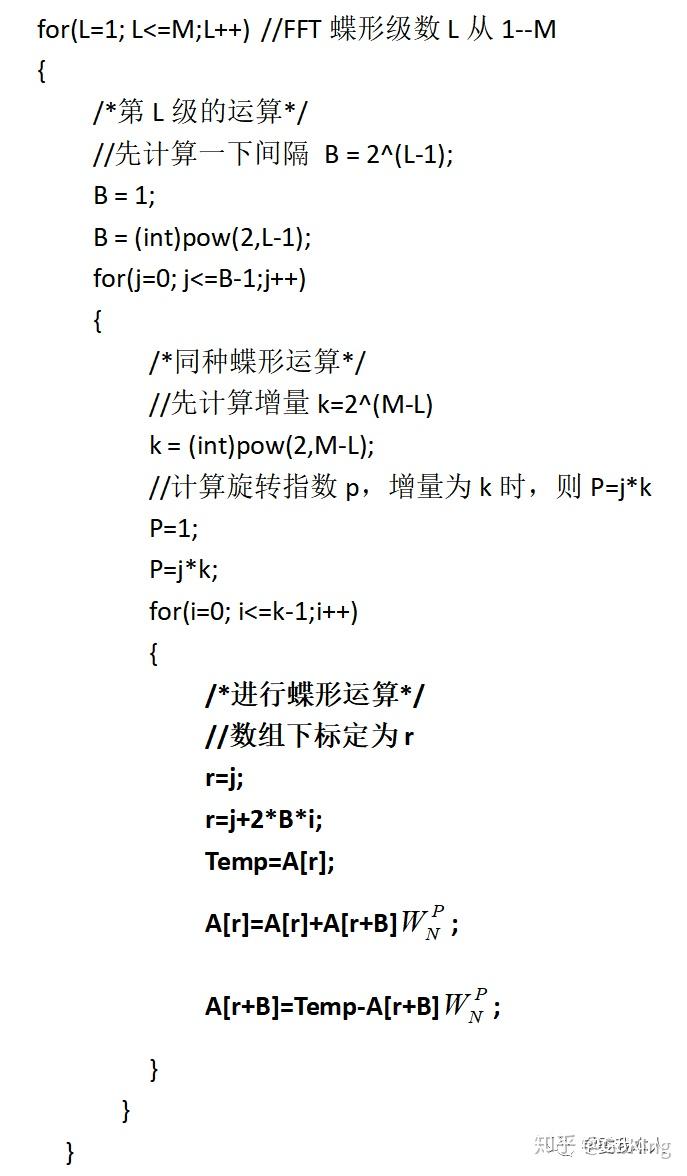 for(L=1; L<=M;L++) //FFT 蝶形级数 L 从 1--M
{
/*第 L 级的运算*/
//先计算一下间隔 B = 2^(L-1);
B = 1;
B = (int)pow(2,L-1);
for(j=0; j<=B-1;j++)
{
/*同种蝶形运算*/
//先计算增量 k=2^(M-L)
k = (int)pow(2,M-L);
//计算旋转指数 p，增量为 k 时，则 P=j*k
P=1;
P=j*k;
for(i=0; i<=k-1;i++)
{
/*进行蝶形运算*/
//数组下标定为 r
r=j;
r=j+2*B*i;
Temp=A[r];
A[r]=A[r]+A[r+B]W_N^P ;
A[r+B]=Temp-A[r+B]W_N^P ;
}
}
}
知乎